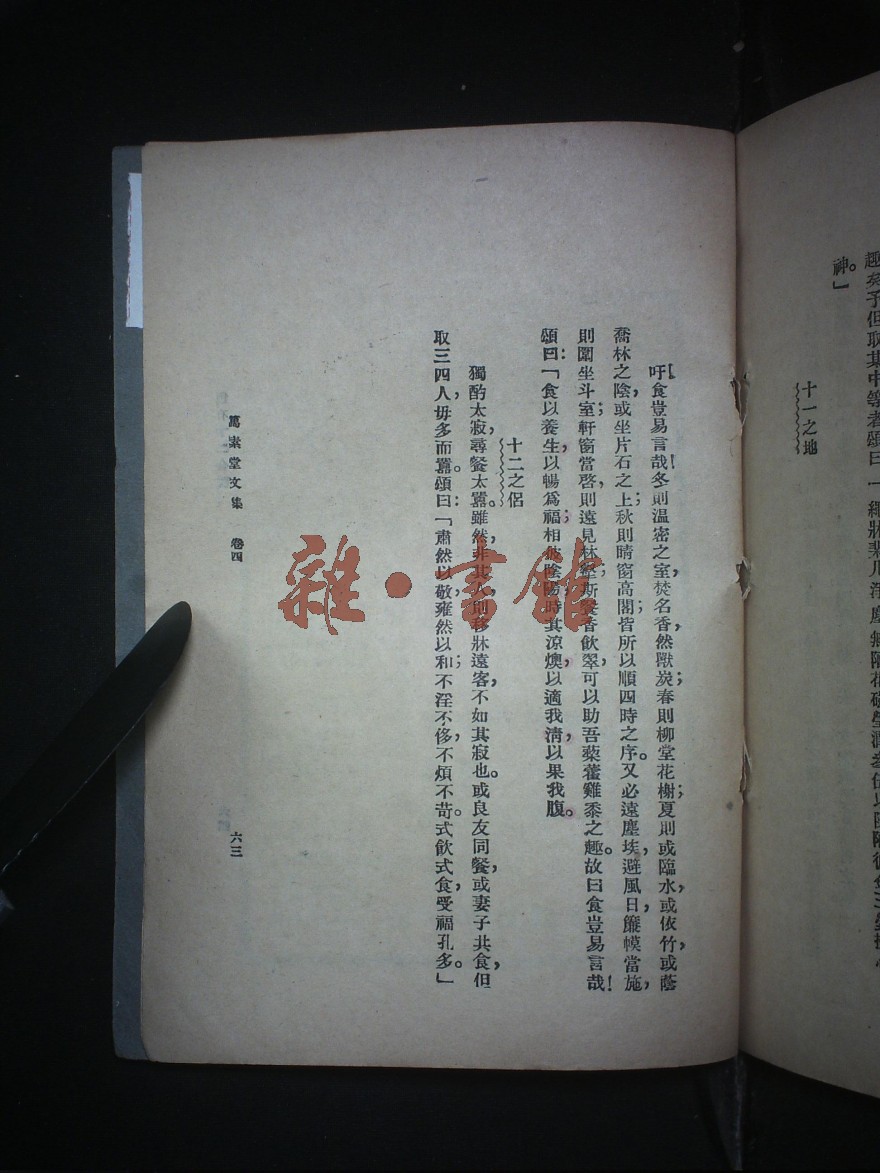 趣矣予但取其中等者頌曰「繩牀棐几淨塵
神。」
十一之地
吁！食豈易言哉！冬則温密之室，焚名香，然獸炭；春則柳堂花榭；夏則或臨水，或依竹，或蔭
喬林之陰，或坐片石之上；秋則晴窗高閣，皆所以順四時之序。又必遠塵埃，避風日，簾幙當施，
則圍坐斗室；軒窗當啓，則遠見林壑。斯餐香飲翠，可以助吾藜藿雞黍之趣。故曰食豈易言哉！
頌曰：「食以養生，以暢爲福；相彼陰陽，時其涼燠，以適我淸，以果我腹。
十二之侶
獨酌太寂，尋餐太囂。雖然，非其人，則移牀遠客，不如其寂也。或良友同餐，或妻子共食，但
取三四人，毋多而囂。頌曰：「肅然以敬，雍然以和；不淫不侈，不煩不苛。式飲式食，受福孔多。」
篤素堂文集　卷四
六三
雜·書館